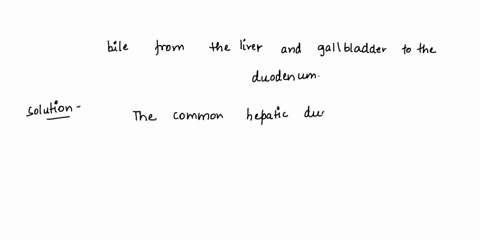 bile from the liver and gallbladder to the
duodenum.
Solution -
The common hepatic du